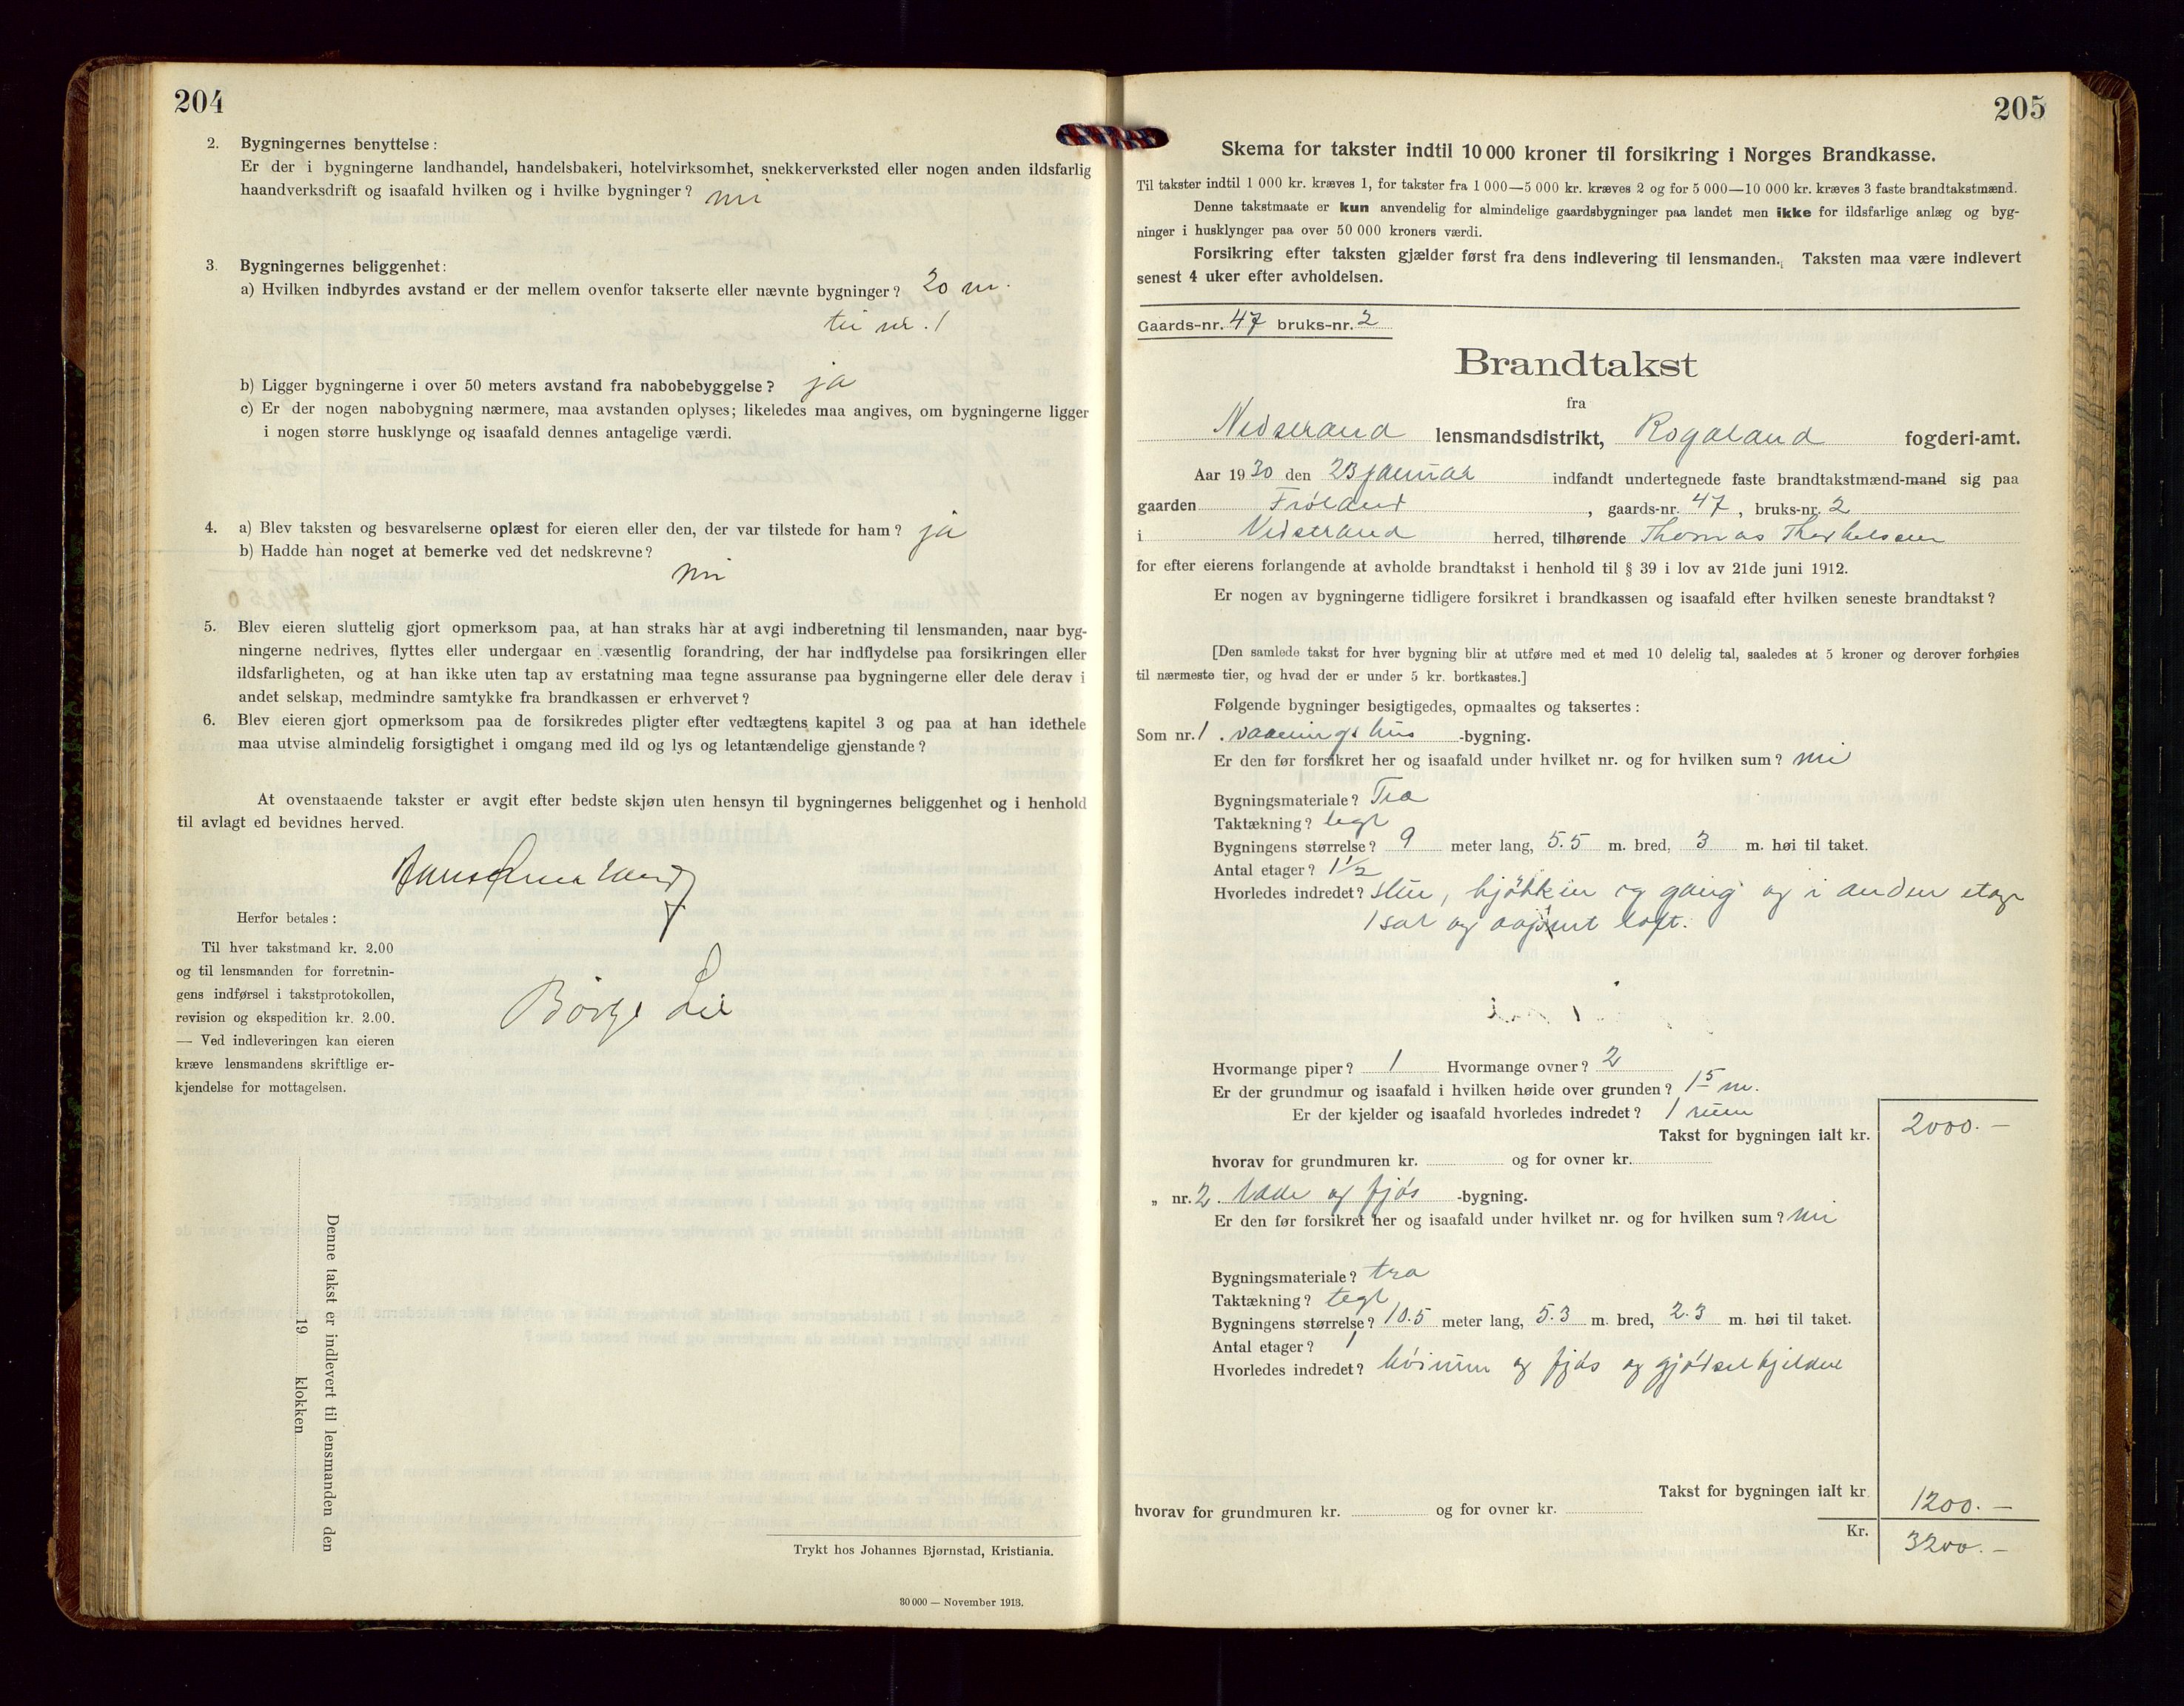 204
2. Bygningernes benyttelse:
Er der i bygningerne landhandel, handelsbakeri, hotelvirksomhet, snekkerverksted eller nogen anden ildsfarlig
haandverksdrift og isaafald hvilken og i hvilke bygninger? nei
3. Bygningernes beliggenhet:
a) Hvilken indbyrdes avstand er der mellem ovenfor takserte eller nævnte bygninger? 20 m.
til nr. 1
b) Ligger bygningerne i over 50 meters avstand fra nabobebyggelse? ja
c) Er der nogen nabobygning nærmere, maa avstanden oplyses; likeledes maa angives, om bygningerne ligger
i nogen større husklynge og isaafald dennes antagelige værdi.
4. a) Blev taksten og besvarelserne oplæst for eieren eller den, der var tilstede for ham? ja
b) Hadde han noget at bemerke ved det nedskrevne?
nei
5. Blev eieren sluttelig gjort opmerksom paa, at han straks har at avgi indberetning til lensmanden, naar byg-
ningerne nedrives, flyttes eller undergaar en væsentlig forandring, der har indflydelse paa forsikringen eller
ildsfarligheten, og at han ikke uten tap av erstatning maa tegne assuranse paa bygningerne eller dele derav i
andet selskap, medmindre samtykke fra brandkassen er erhvervet?
6. Blev eieren gjort opmerksom paa de forsikredes pligter efter vedtægtens kapitel 3 og paa at han idethele
maa utvise almindelig forsigtighet i omgang med ild og lys og letantændelige gjenstande?
At ovenstaaende takster er avgit efter bedste skjøn uten hensyn til bygningernes beliggenhet og i henhold
til avlagt ed bevidnes herved.
Herfor betales:
Til hver takstmand kr. 2.00
og til lensmanden for forretnin-
gens indførsel i takstprotokollen,
revision og ekspedition kr. 2.00.
— Ved indleveringen kan eieren
kræve lensmandens skriftlige er-
kjendelse for mottagelsen.
Børge Lie
Denne takst er indlevert til lensmanden den
19 klokken
Trykt hos Johannes Bjørnstad, Kristiania.
30 000 — November 1913.
205
Skema for takster indtil 10 000 kroner til forsikring i Norges Brandkasse.
Til takster indtil 1 000 kr. kræves 1, for takster fra 1 000—5 000 kr. kræves 2 og for 5 000—10 000 kr. kræves 3 faste brandtakstmænd.
Denne takstmaate er kun anvendelig for almindelige gaardsbygninger paa landet men ikke for ildsfarlige anlæg og byg-
ninger i husklynger paa over 50 000 kroners værdi.
Forsikring efter taksten gjælder først fra dens indlevering til lensmanden. Taksten maa være indlevert
senest 4 uker efter avholdelsen.
Gaards-nr. 47 bruks-nr. 2
Brandtakst
fra
Nedstrand lensmandsdistrikt, Rogaland fogderi-amt.
Aar 1930 den 23 januar indfandt undertegnede faste brandtakstmænd-mand sig paa
gaarden Frøland, gaards-nr. 47, bruks-nr. 2
i Nedstrand herred, tilhørende Thomas Thorkelsen
for efter eierens forlangende at avholde brandtakst i henhold til § 39 i lov av 21de juni 1912.
Er nogen av bygningerne tidligere forsikret i brandkassen og isaafald efter hvilken seneste brandtakst?
[Den samlede takst for hver bygning blir at utføre med et med 10 delelig tal, saaledes at 5 kroner og derover forhøies
til nærmeste tier, og hvad der er under 5 kr. bortkastes.]
Følgende bygninger besigtigedes, opmaaltes og taksertes:
Som nr. 1. vaaningshus -bygning.
Er den før forsikret her og isaafald under hvilket nr. og for hvilken sum? nei
Bygningsmateriale? Træ
Taktækning? tegl
Bygningens størrelse? 9 meter lang, 5.5 m. bred, 3 m. høi til taket.
Antal etager? 1 1/2
Hvorledes indredet? stue, kjøkken og gang og i anden etage
1 sal og aapent loft.
Hvormange piper? 1 Hvormange ovner? 2
Er der grundmur og isaafald i hvilken høide over grunden? 1 5 m.
Er der kjelder og isaafald hvorledes indredet? 1 rum
Takst for bygningen ialt kr. 2000.—
hvorav for grundmuren kr. og for ovner kr.
„ nr. 2. Lade og fjøs -bygning.
Er den før forsikret her og isaafald under hvilket nr. og for hvilken sum? nei
Bygningsmateriale? træ
Taktækning? tegl
Bygningens størrelse? 10.5 meter lang, 5.3 m. bred, 2.3 m. høi til taket.
Antal etager? 1
Hvorledes indredet? høirum og fjøs og gjødselkjelder
Takst for bygningen ialt kr 1200.—
hvorav for grundmuren kr. og for ovner kr.
Kr. 3200.—